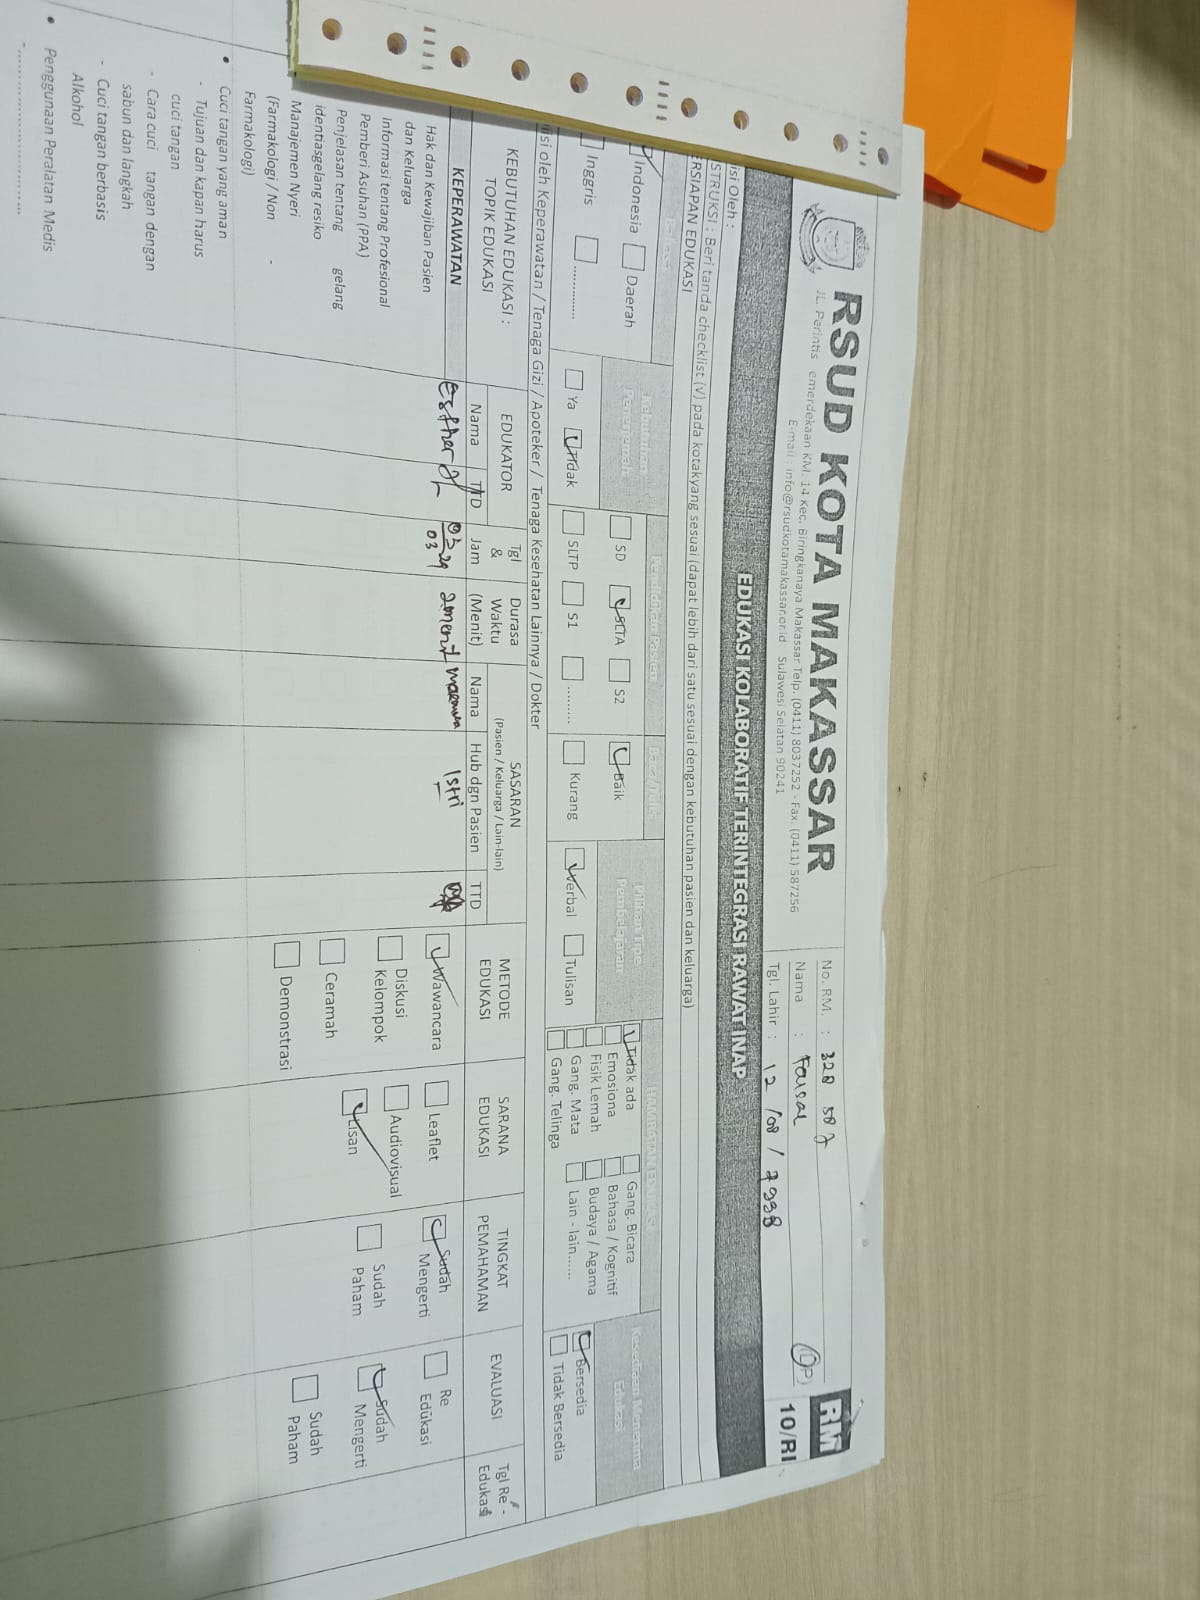 RSUD KOTA MAKASSAR
JL. Perintis emerdekaan KM. 14 Kec. Biringkanaya Makassar Telp. (0411) 8037252 - Fax. (0411) 587256
E-mail : info@rsudkotamakassar.or.id Sulawesi Selatan 90241
No. RM. : 328 58
Nama : Faisal
Tgl. Lahir : 12 / 08 /
RM
10/RI
EDUKASI KOLABORATIF TERINTEGRASI RAWAT INAP
isi Oleh :
STRUKSI : Beri tanda checklist (√) pada kotakyang sesuai (dapat lebih dari satu sesuai dengan kebutuhan pasien dan keluarga)
ERSIAPAN EDUKASI
Bahasa
Indonesia
Daerah
Inggris
.............
Kebutuhan
Penerjemah
Ya
Tidak
Pendidikan Pasien
SD
SLTA
S2
SLTP
S1
.........
Baca/Tulis
Baik
Kurang
Pilihan Tipe
Pembelajaran
Verbal
Tulisan
HAMBATAN EDUKASI
Tidak ada
Gang. Bicara
Emosiona
Bahasa / Kognitif
Fisik Lemah
Budaya / Agama
Gang. Mata
Lain - lain......
Gang. Telinga
Kesediaan Menerima
Edukasi
Bersedia
Tidak Bersedia
isi oleh Keperawatan / Tenaga Gizi / Apoteker / Tenaga Kesehatan Lainnya / Dokter
KEBUTUHAN EDUKASI :
TOPIK EDUKASI
EDUKATOR
Nama
TTD
Tgl
&
Jam
Durasa
Waktu
(Menit)
SASARAN
(Pasien / Keluarga / Lain-lain)
Nama
Hub dgn Pasien
TTD
METODE
EDUKASI
SARANA
EDUKASI
TINGKAT
PEMAHAMAN
EVALUASI
Tgl Re -
Edukasi
KEPERAWATAN
Esther
03
03
29
2menit
Istri
Hak dan Kewajiban Pasien
dan Keluarga
Informasi tentang Profesional
Pemberi Asuhan (PPA)
Penjelasan tentang gelang
identiasgelang resiko
Manajemen Nyeri
(Farmakologi / Non -
Farmakologi)
• Cuci tangan yang aman
- Tujuan dan kapan harus
cuci tangan
- Cara cuci tangan dengan
sabun dan langkah
- Cuci tangan berbasis
Alkohol
• Penggunaan Peralatan Medis
-..................................
Wawancara
Diskusi
Kelompok
Ceramah
Demonstrasi
Leaflet
Audiovisual
Lisan
Sudah
Mengerti
Sudah
Paham
Re
Edukasi
Sudah
Mengerti
Sudah
Paham